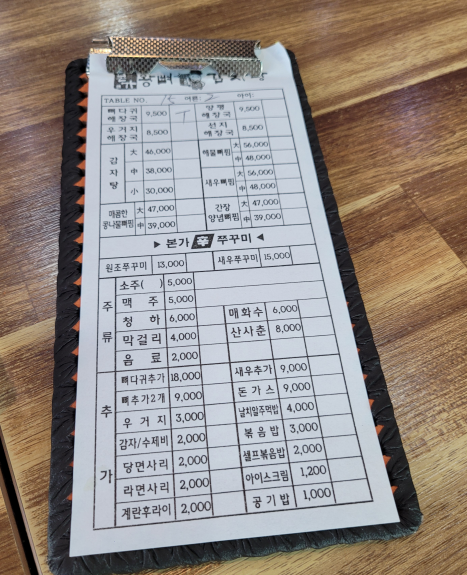 TABLE NO. 15 어른: 2 아이:
뼈다귀 해장국 9,500 T 양평 해장국 9,500
우거지 해장국 8,500 선지 해장국 8,500
감자탕 大 46,000 해물뼈찜 大 56,000
中 38,000 中 48,000
小 30,000 새우뼈찜 大 56,000
中 48,000
매콤한 콩나물뼈찜 大 47,000 간장 양념뼈찜 大 47,000
中 39,000 中 39,000
▶ 본가 辛 쭈꾸미 ◀
원조쭈꾸미 13,000 새우쭈꾸미 15,000
주류
소주( ) 5,000
맥 주 5,000
청 하 6,000 매화수 6,000
막걸리 4,000 산사춘 8,000
음 료 2,000
추가
뼈다귀추가 18,000 새우추가 9,000
뼈추가2개 9,000 돈가스 9,000
우 거 지 3,000 날치알주먹밥 4,000
감자/수제비 2,000 볶음밥 3,000
당면사리 2,000 셀프볶음밥 2,000
라면사리 2,000 아이스크림 1,200
계란후라이 2,000 공기밥 1,000